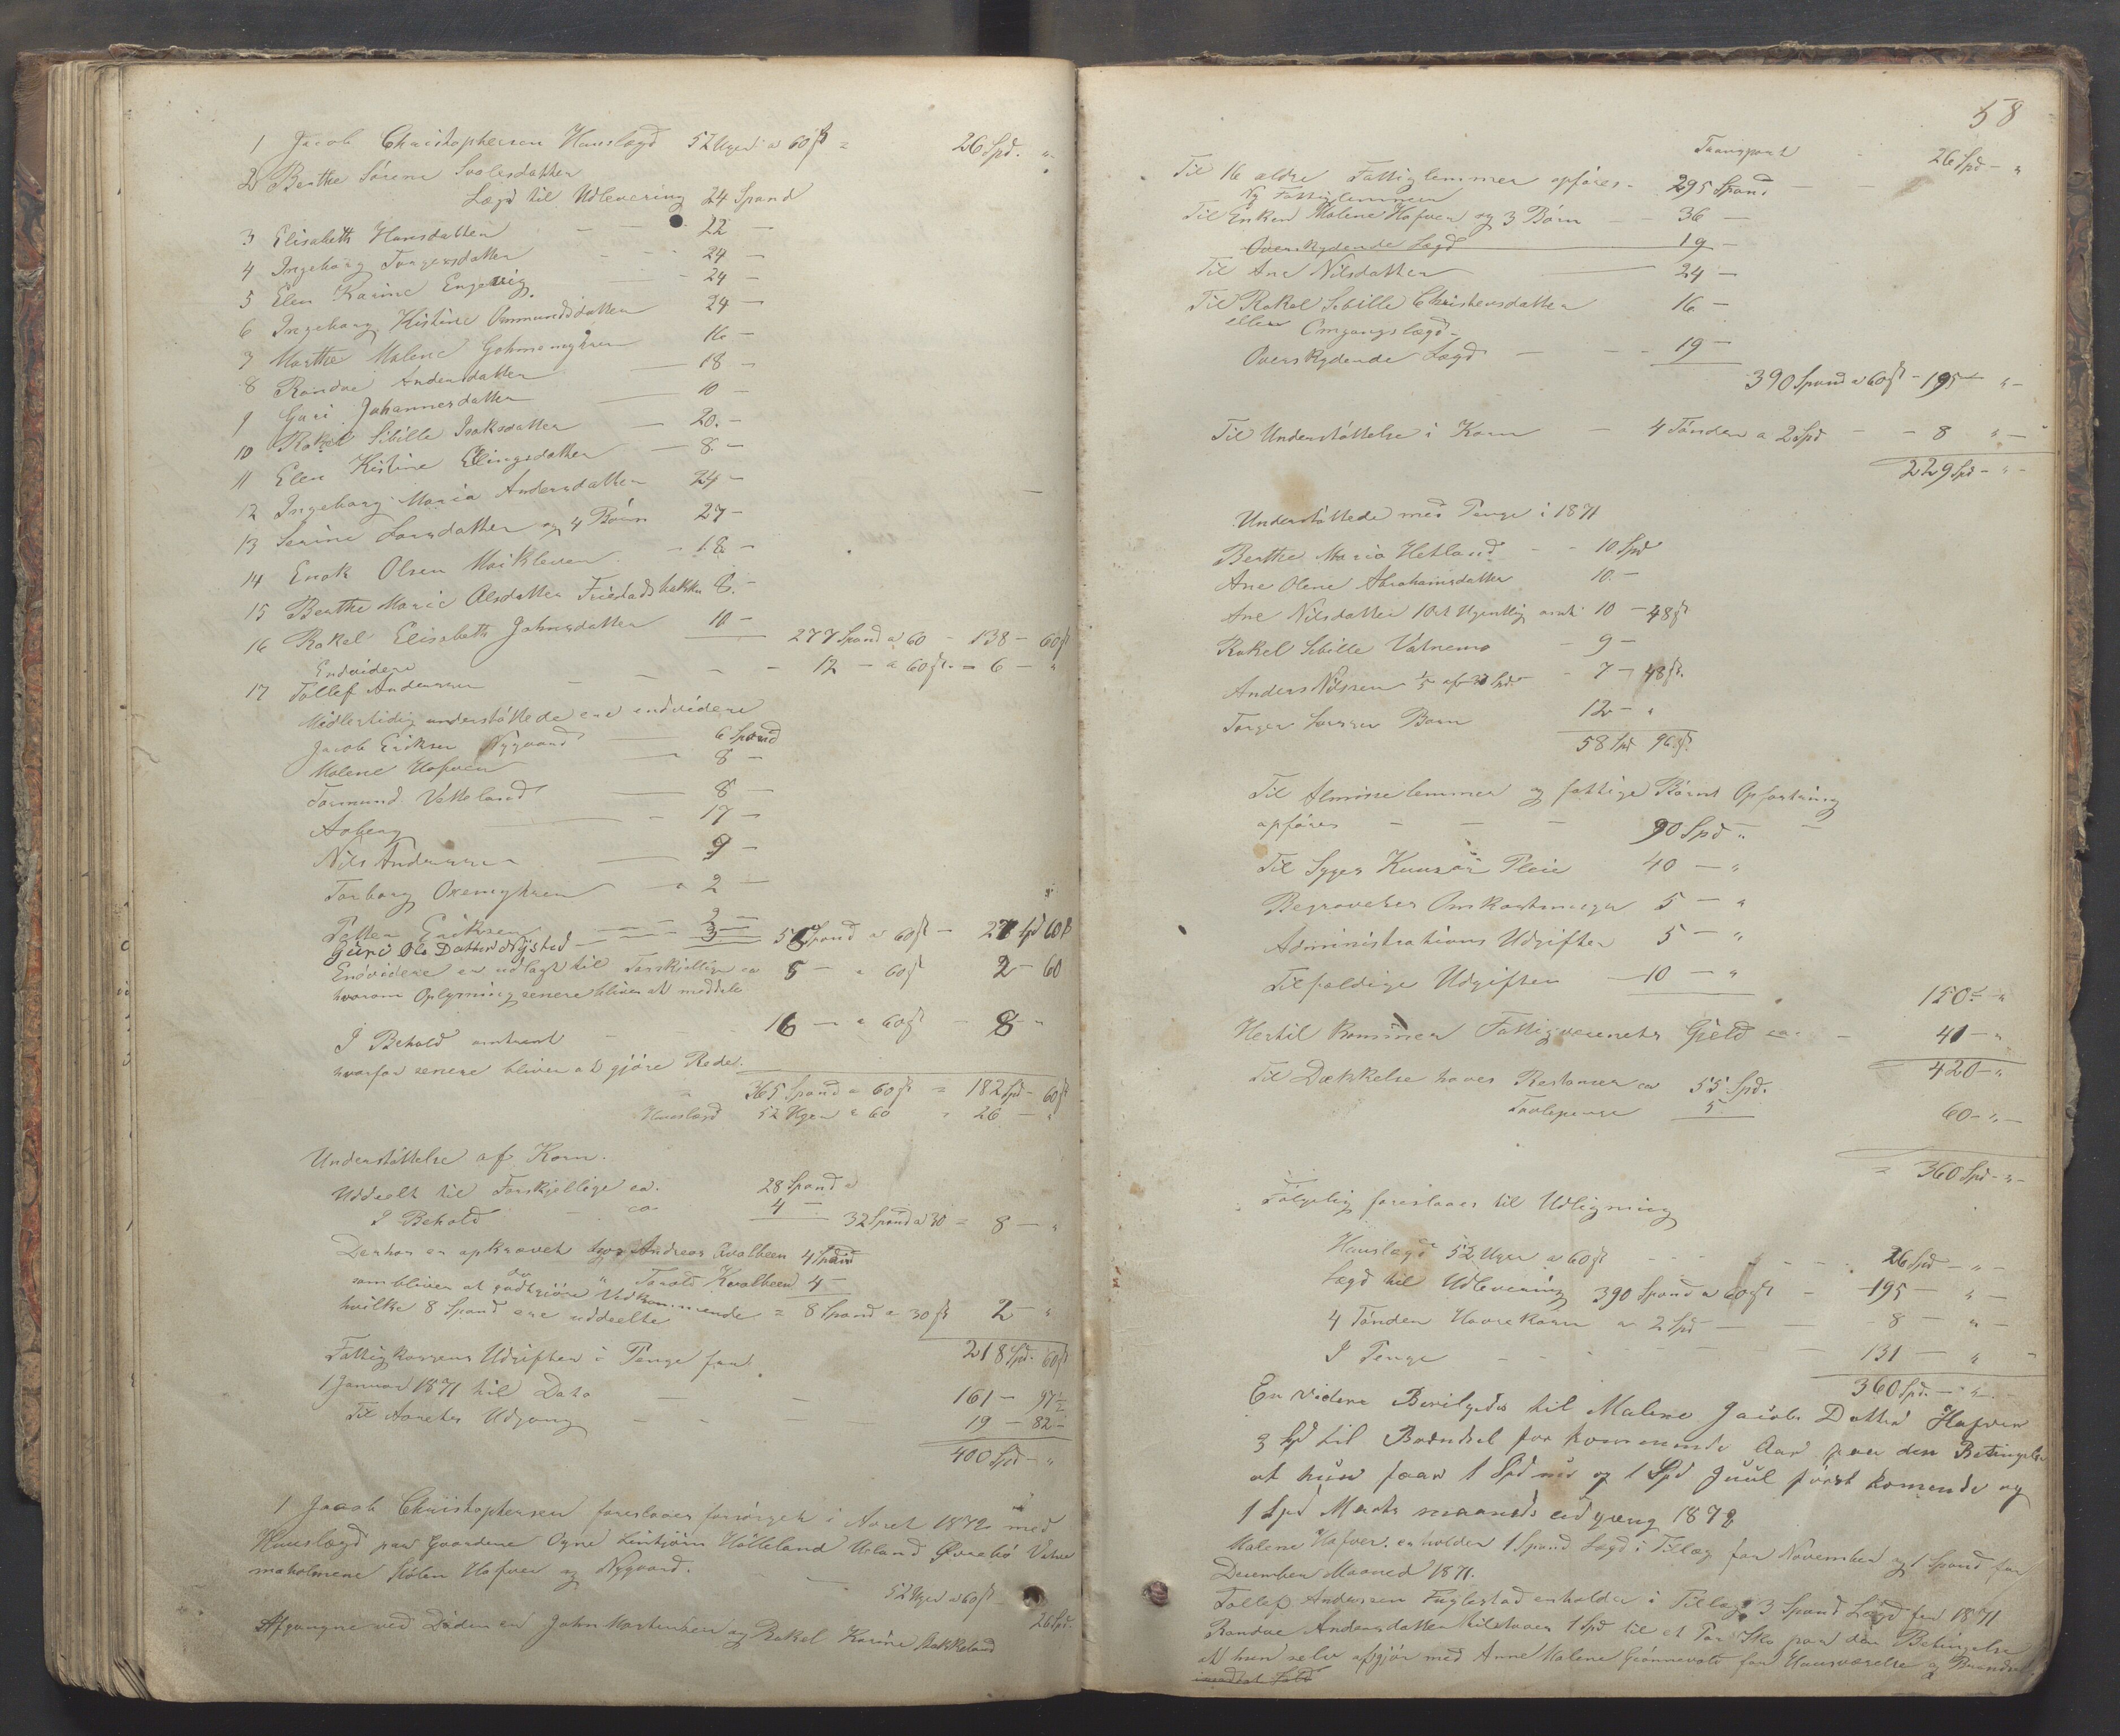 1 Jacob Christophersen Huuslægd 52 Uger a 60 ß = 26 Spd. "
2 Berthe Sørine
Lægd til Udlevering 24 Spand
3 Elisabeth Hansdatter - - 22 -
4 Ingeborg Torgersdatter - - 24 -
5 Elen Karine - - 24 -
6 Ingeborg Kistine Ommundsdatter 24 -
7 Marthe Malene 16 -
8 Randvei Andersdatter - 18 -
9 Guri Johannesdatter - 10 -
10 Rakel Sibille Isaksdatter - 20 -
11 Elen Kistine Ellingsdatter - 8 -
12 Ingeborg Maria Andersdatter 24 -
13 Serine Larsdatter og 4 Børn 27 -
14 Enok Olsen - 18 -
15 Berthe Marie Olsdatter 8 -
16 Rakel Elisabeth Johnsdatter 10 - 277 Spand a 60 - 138 - 60 ß
Endvidere
17 Tollef Andersen - - - 12 - a 60 ß - 6 - "
Midlertidig understøttede ere endvidere
Jacob Eriksen Nygaard - 6 Spand
Malene Hafver - 8 -
Tormund Vetteland - 8 -
Aoberg - 17 -
Nils Andersen - 9 -
Torborg Oremyhren - 2 -
Eriksen - 3
Guri Ols Datter - 3 Spand a 60 ß - 27 Spd 60 ß
Endvidere er udlagt til Forskjellige ca 5 - a 60 ß 2 - 60
hvorom Oplysning senere bliver at meddele
I Behold omtrent - 16 - a 60 ß - 8 - "
hvorfor senere bliver at gjøre Rede.
365 Spand a 60 ß = 182 Spd - 60 ß
Huuslægd 52 Uger a 60 " 26 - "
Understøttelse af Korn.
Uddeelt til Forskjellige ca. 28 Spand
I Behold - ca 4 - 32 Spand a 30 = 8 - "
Derhos er opkrævet hos Andreas Qvalbeen 4 Spand
som bliver at godtgjøre Vedkommende " Kvalbeen 4 -
hvilke 8 Spand ere uddeelte = 8 Spand a 30 ß 2 - "
218 Spd. 60 ß
Fattigkassens Udgifter i Penge fra
1 Januar 1871 til Dato - - 161 - 97½
Til Aarets Udgang - - 19 - 82 -
400 Spd - "
1 Jacob Christophersen foreslaaes forsørget i Aaret 1872 med
Huuslægd paa Gaardene Ogne Hølleland
maholmene Stølen Hafver og Nygaard.
52 Uger a 60 ß - 26 Spd.
Afgangne ved Døden er John Mortensen og Rakel Karine
58
Transport - 26 Spd - "
Til 16 ældre Fattiglemmer opføres - 295 Spand - -
Ny Fattiglemmer
Til Enken Malene Hafver og 3 Børn - - 36 -
Overskydende Lægd 19 -
Til Ane Nilsdatter - 24 -
Til Rakel Sibille Christensdatter 16 -
eller Omgangslægd -
Overskydende Lægd - - - 19 -
390 Spand a 60 ß - 195 - " -
Til Understøttelse i Korn - 4 Tønder a 2 Spd - - 8 " -
229 Spd - " -
Understøttede med Penge i 1871
Berthe Maria Hetland - - 10 Spd
Ane Olene Abrahamsdatter 10 -
Ane Nilsdatter 1 Ort Ugentlig omtr. 10 - 48 ß
Rakel Sibille Vatnemo - 9 -
Anders Nilssen - 7 - 48 ß.
Torger Larssen Børn 12 - "
58 Spd 96 ß.
Til Almisselemmer og fattige Børns Opfostring
opføres - - - 90 Spd " -
Til Syges Kuur og Pleie 40 - "
Begravelses Omkostninger 5 - "
Administrations Udgifter 5 - "
Tilfældige Udgifter - 10 - "
150 - "
Hertil kommer Fattigvæsenets Gjeld ca. - 41 - "
420 - "
Til Dækkelse haves Restancer ca 55 Spd.
Tavlepenge 5 60 - " -
= 360 Spd - " -
Følgelig foreslaaes til Udligning
Huuslægd 52 Uger a 60 ß - - - 26 Spd - " -
Lægd til Udlevering 390 Spand a 60 ß - 195 - " -
4 Tønder Havrekorn a 2 Spd - - 8 - " -
I Penge - - - - 131 - " -
360 Spd. - "
En videre Bevilgedes til Malene Jacobs Datter Hafver
3 Spd til Brændsel for kommende Aar paa den Betingelse
at hun faar 1 Spd nu og 1 Spd Juul først komende og
1 Spd Marts maaneds udgang 1872
Malene Hafver erholder 1 Spand Lægd i Tillæg for November og 1 Spand for
December Maaned 1871.
Tollef Andersen Fuglestad erholder i Tillæg 3 Spand Lægd for 1871
Randvei Andersdatter tilstaaes 1 Spd til et Par Sko paa den Betingelse
at hun selv afgjør med Anne Malene Grønnevold for Huusværelse og Brændsel